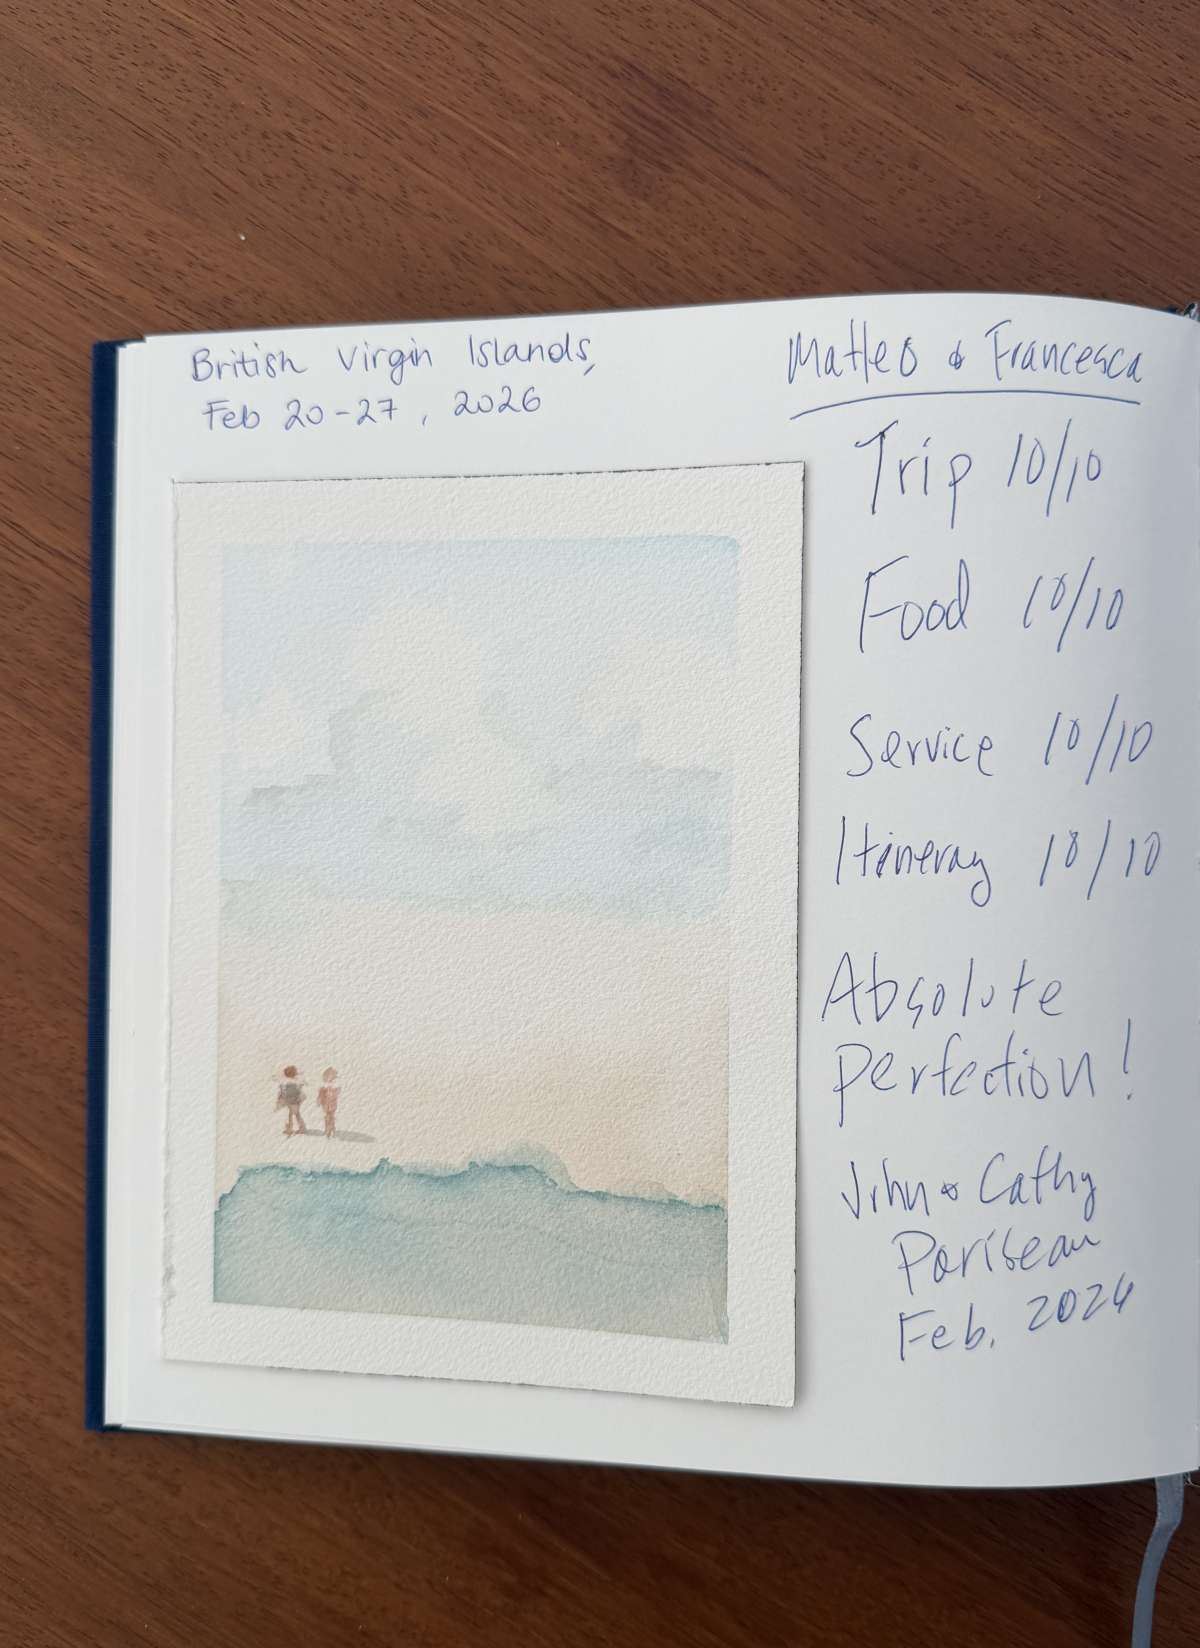 British Virgin Islands,
Feb 20-27, 2026
Matteo & Francesca
Trip 10/10
Food 10/10
Service 10/10
Itineray 10/10
Absolute
perfection!
John & Cathy
Pariseau
Feb. 2026